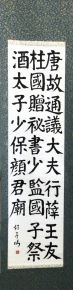 唐故通議大夫行薛王友
柱國贈秘書少監國子祭
酒太子少保顏君廟